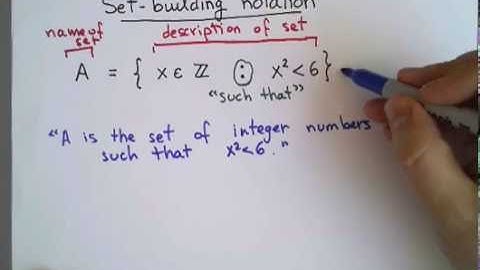 Set-building notation
name of set
description of set
A = { x ∈ ℤ : x² < 6 }
"such that"
"A is the set of integer numbers
such that x² < 6."